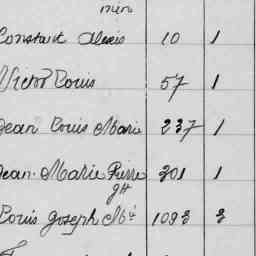 Constant Alexis 10 1
Victor Louis 57 1
Jean Louis Marie 237 1
Jean-Marie Pierre 301 1
Louis Joseph Mie 1093 3